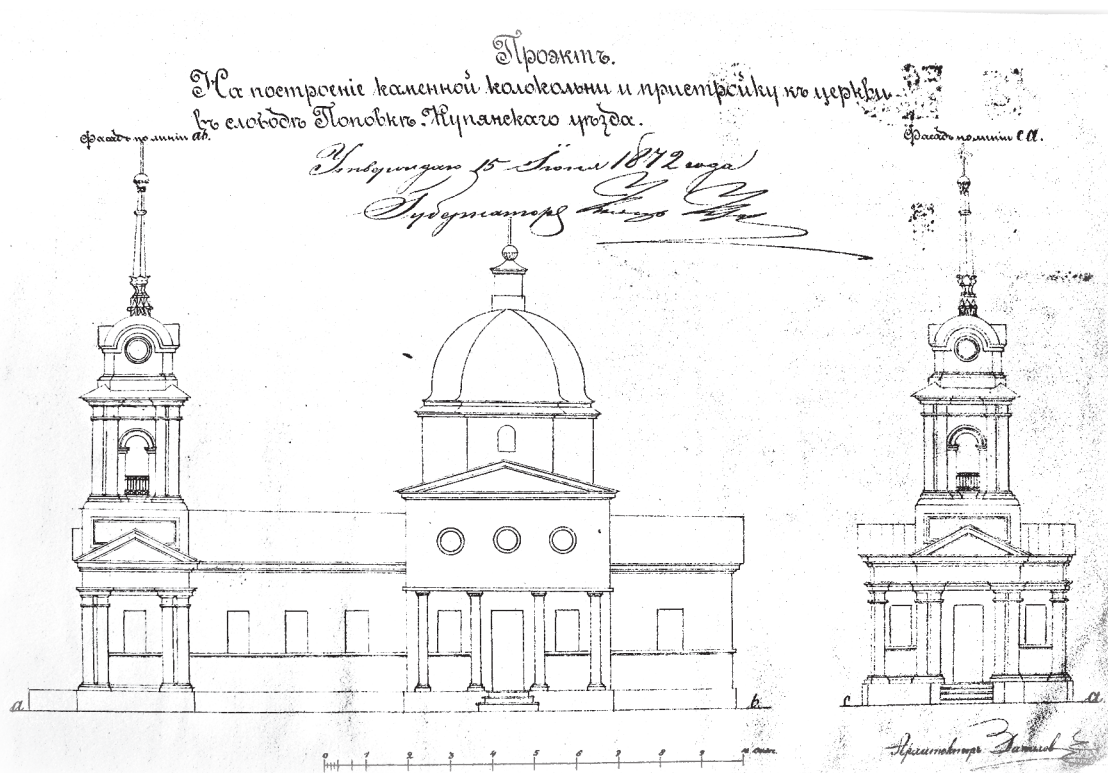 Проэктъ.
На построеніе каменной колокольни и пристройку къ церкви
въ слободѣ Поповкѣ. Купянскаго уѣзда.
Фасадъ по линіи ab.
Фасадъ по линіи c d.
Утверждаю 15 Іюня 1872 года
Губернаторъ
a
b
c
d
0 1 2 3 4 5 6 7 8 9 10 саж.
Архитекторъ Данилов